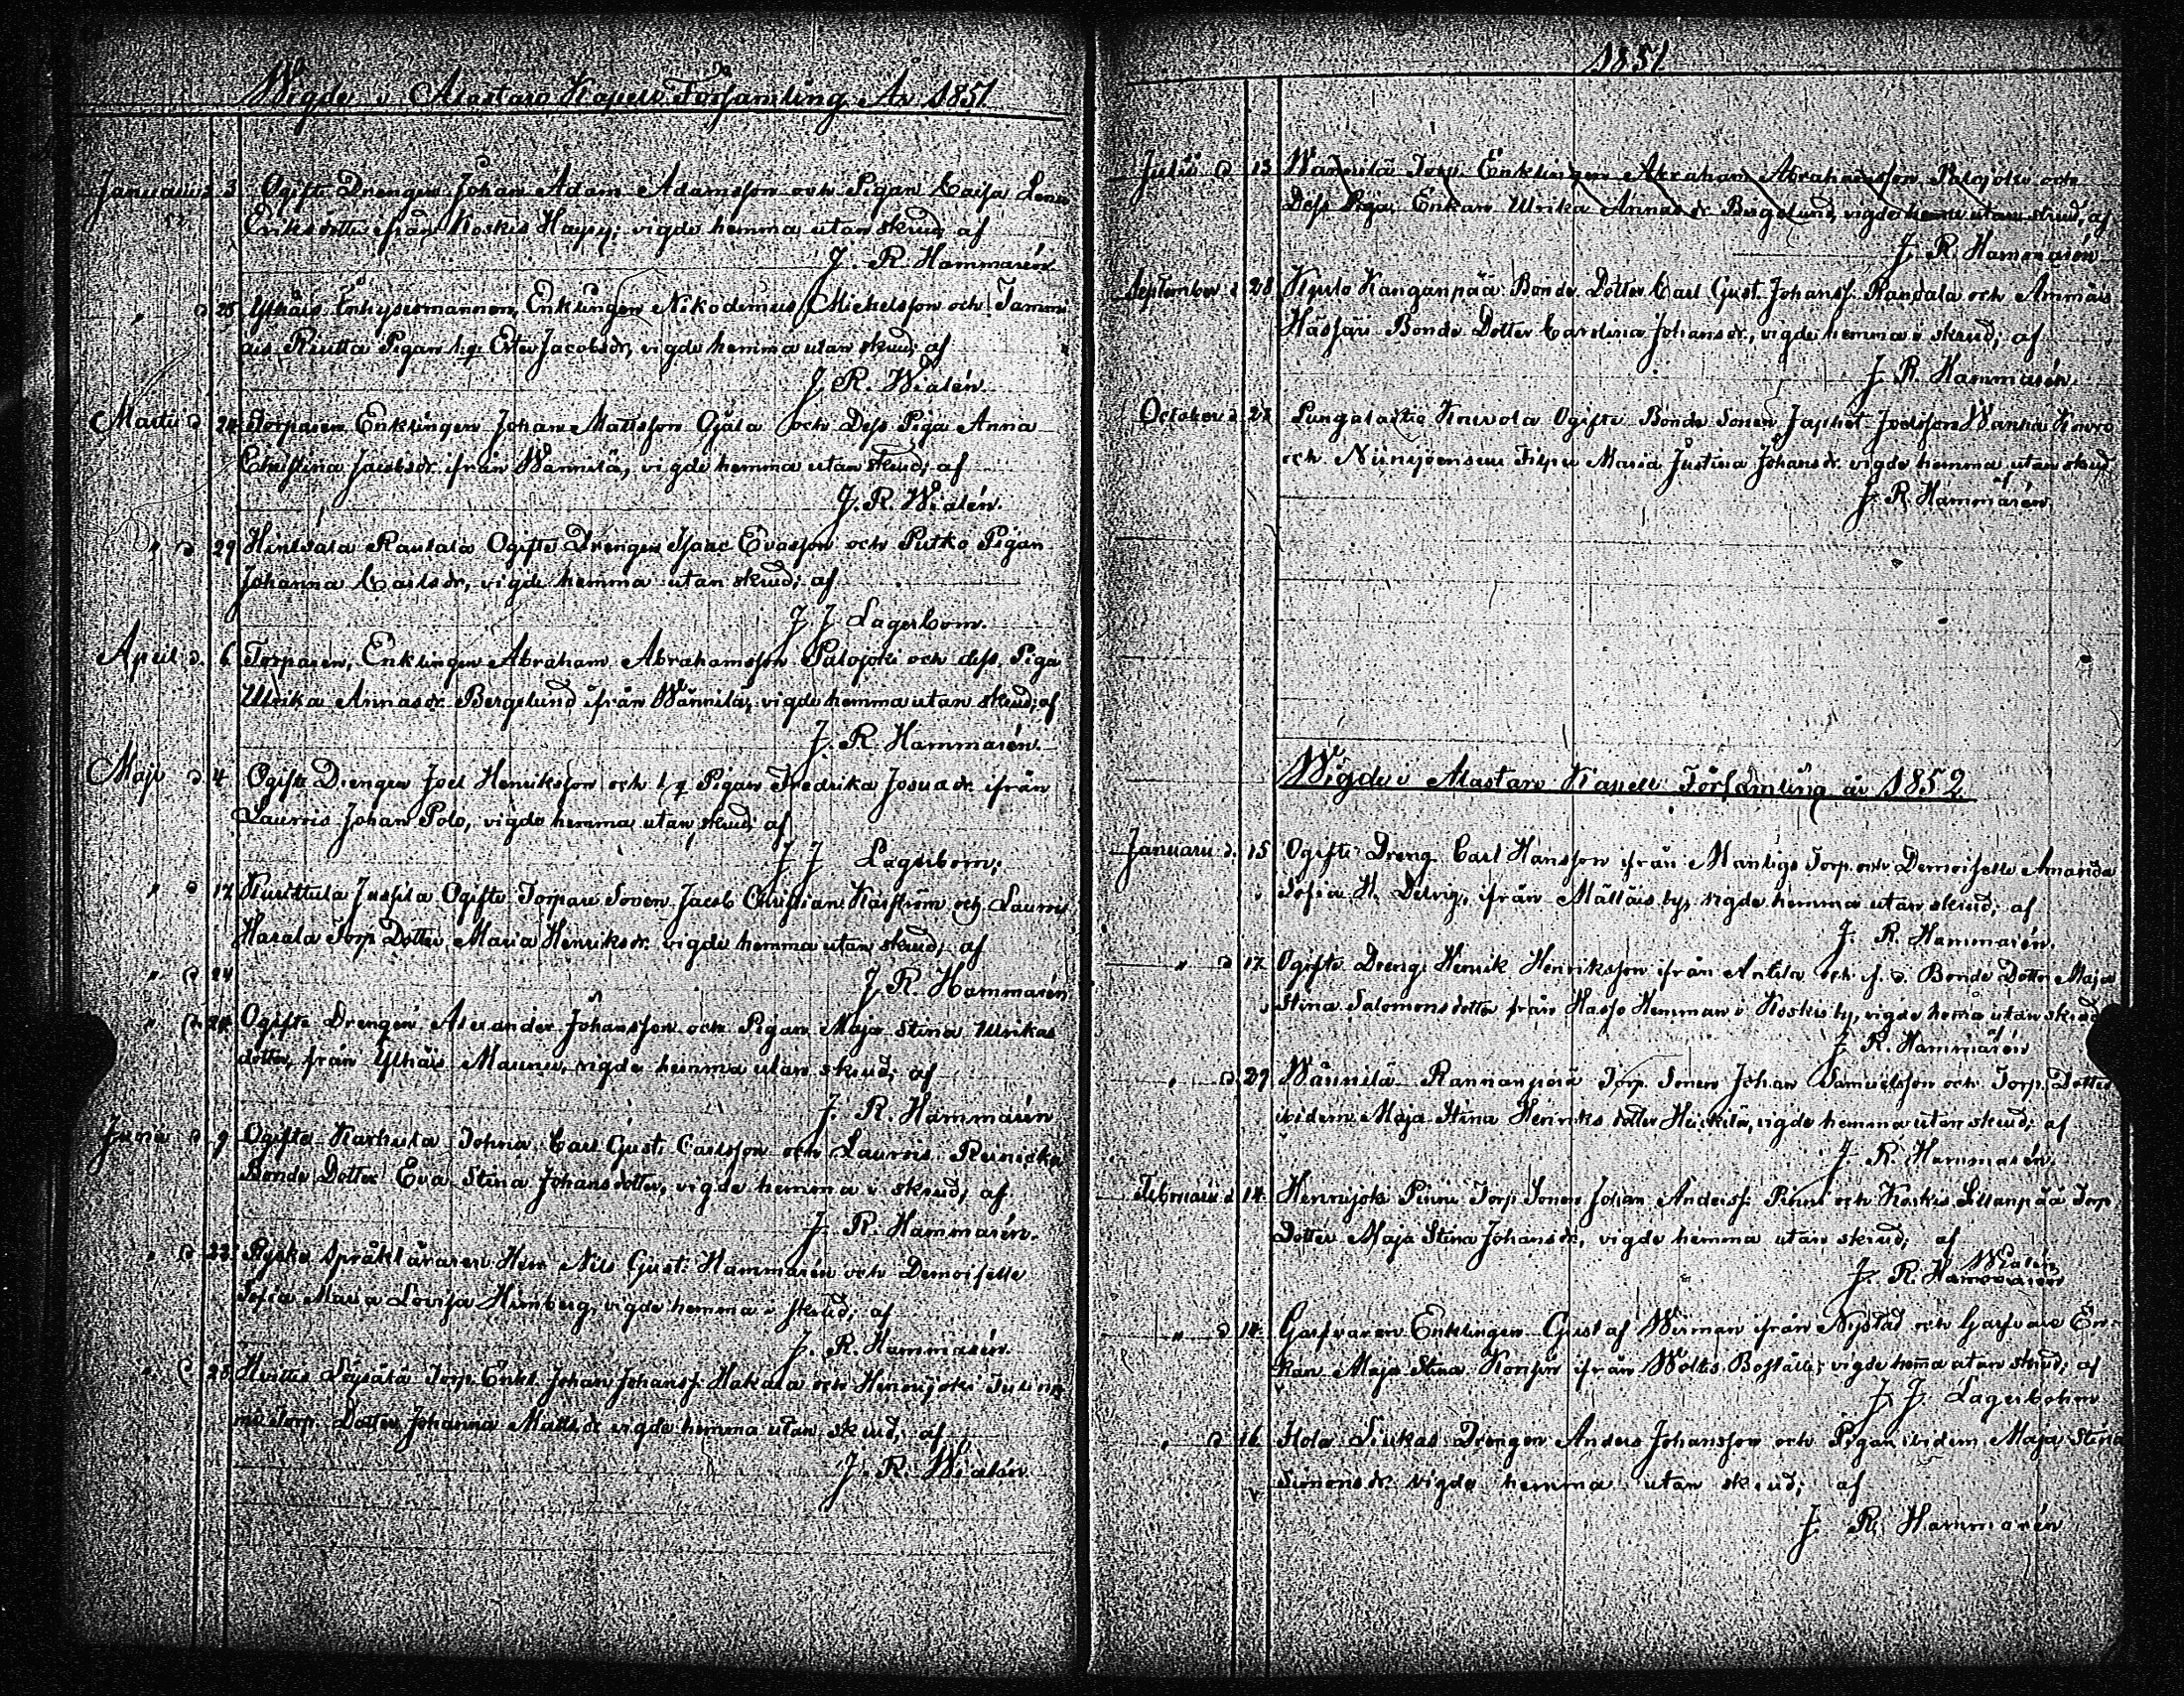 Wigde i Alastaro Kapell Församling År 1851
Januarii d. 3 Ogifte Drengen Johan Adam Adamsson och Pigan Caisa Lena
Eriksdotter ifrån Koskis Haysy; vigde hemma utan skrud af
J. R. Hammarén
" d 25 Ylhäis Inhysesmannen, Enklingen Nikodemus Michelsson och Tammi
ais Riutta Pigan h.q. Ester Jacobsdr, vigde hemma utan skrud; af
J. R. Wialén.
Martii d 24 Torparen Enklingen Johan Mattsson Ojala och Dess Piga Anna
Christina Jacobsdr. ifrån Wännilä, vigde hemma utan skrud; af
J. R. Wialén.
" d 29 Hinlvala Rautala Ogifte Drengen Isaac Evasson och Putko Pigan
Johanna Carlsdr, vigde hemma utan skrud; af
J J Lagerbom.
April d. 6 Torparen, Enklingen Abraham Abrahamsson Palojoki och dess Piga
Ulrika Annasdr. Berglund ifrån Wännilä, vigde hemma utan skrud; af
J. R. Hammarén.
Maji d 4 Ogifte Drengen Joel Henriksson och h.q. Pigan Fredrika Josuadr. ifrån
Laurois Johan Polo, vigde hemma utan skrud; af
J J Lagerbom;
" d 17 Jussila Ogifte Torpare Sonen Jacob Christian och Laurois
Harala Torp Dotter Maria Henriksdr. vigde hemma utan skrud; af
" d 24 J. R. Hammarén
" d 24 Ogifte Drengen Alexander Johansson och Pigan Maja Stina Ulrikas
dotter, från Ylhäis Maunu, vigde hemma utan skrud; af
J. R. Hammarén
Junii d 9 Ogifte Karhula Carl Gust: Carlsson och Laurois Reinicka
Bonde Dotter Eva Stina Johansdotter, vigde hemma i skrud; af
J. R. Hammarén.
" d 22. Ryska Språkläraren Herr Nils Gust: Hammarén och Demoiselle
Sofia Maria Lovisa Himberg, vigde hemma i skrud; af
J. R. Hammarén.
" d 25 Torp. Enkl. Johan Johanss. Hakala och Hennijoki
Torp. Dotter Johanna Mattsdr vigde hemma utan skrud; af
J. R. Wialén
1851
Julii d 13 Wännilä Torp. Enklingen Abraham Abrahamsson Palojoki och
Dess Piga, Enkan Ulrika Annasdr Berglund, vigde hemma utan skrud, af
J. R. Hammarén
September d 28 Kanganpää Bonde Dotter Carl Gust. Johanss. Randala och Ammäis
Bonde Dotter Carolina Johansdr., vigde hemma i skrud; af
J. R. Hammarén.
October d. 28 Kouvola Ogifte Bonde Sonen Japhet Joelsson
och Niinijoensuu Maria Justina Johansdr. vigde hemma utan skrud
af
J. R. Hammarén.
Wigde i Alastaro Kapell Församling år 1852
Januarii d. 15 Ogifte Dreng. Carl Hansson ifrån Torp och Demoiselle Amanda
Sofia H. ifrån Mälläis by, vigde hemma utan skrud; af
J. R. Hammarén.
" d 17. Ogifte Dreng. Henrik Henriksson ifrån Anttila och f. d. Bonde Dotter Maja
Stina Salomonsdotter från Hemman i Koskis by, vigde hemma utan skrud
af
J. R. Hammarén
" d. 29 Wännilä Rannanpää Torp. Sonen Johan Samuelsson och Torp. Dotter
ibidem Maja Stina Henriks dotter Heickilä, vigde hemma utan skrud; af
J. R. Hammarén.
Februarii d. 14. Hennijoki Pinni Torp. Sonen Johan Anderss. Pinni och Koskis Torp
Dotter Maja Stina Johansdr., vigde hemma utan skrud; af
Wialén
J. R. Hammarén
" d 14. Garfvaren Enklingen Gustaf Wirman ifrån Nystad och Garfvare En
kan Maja Stina ifrån Woltis Boställe; vigde hemma utan skrud; af
J. J. Lagerbohm
" d 16. Hola Drengen Anders Johansson och Pigan ibidem Maja Stina
Simonsdr. vigde hemma utan skrud; af
J. R. Hammarén